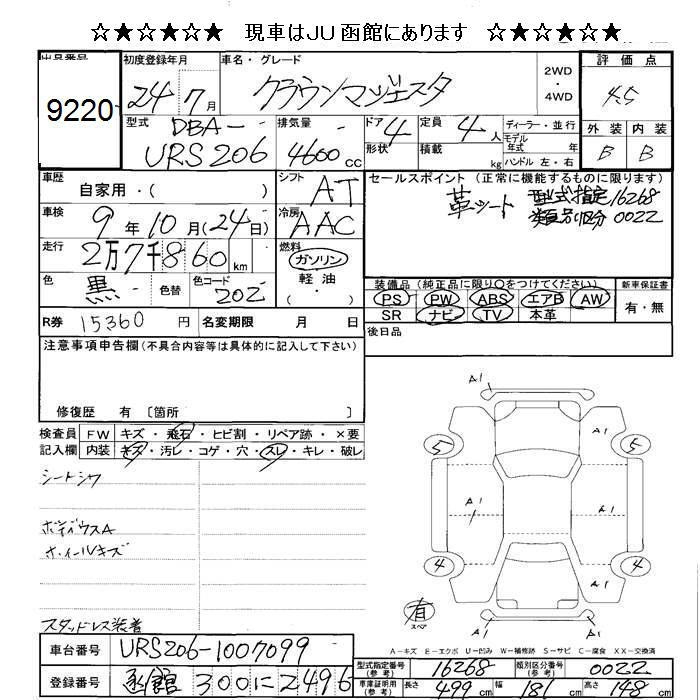 ☆★☆★☆★ 現車はJU函館にあります ☆★☆★☆★
出品番号 9220
初度登録年月 24年7月
車名・グレード クラウンマジェスタ
2WD・4WD
評価点 4.5
外装 B 内装 B
型式 DBA-URS206
排気量 4600cc
ドア 4 形状
定員 4人
積載 kg
ディーラー・並行
モデル年式 年
ハンドル 左・右
車歴 自家用・( )
シフト AT
セールスポイント(正常に機能するものに限ります)
革シート 型式指定16268
類別区分0022
車検 9年10月(24日)
冷房 AAC
走行 2万7千860km
燃料 ガソリン・軽油・
色 黒 色替 色コード 202
装備品(純正品に限り○をつけてください) 新車保証書
PS PW ABS エアB AW 有・無
SR ナビ TV 本革
R券 15360円 名変期限 月 日
後日品
注意事項申告欄(不具合内容等は具体的に記入して下さい)
修復歴 有〔箇所
検査員記入欄
FW キズ・飛石・ヒビ割・リペア跡・×要
内装 キズ・汚レ・コゲ・穴・スレ・キレ・破レ
シートシワ
ボディウスA
ホイールキズ
スタッドレス装着
A1 A1
A1
5 5
A1 A1
A1
4 4
有 スペア
A1 A1
A-キズ E-エクボ U-凹み W-補修跡 S-サビ C-腐食 XX-交換済
車台番号 URS206-1007099
登録番号 函館 300 に 2496
型式指定番号(参考) 16268 類別区分番号(参考) 0022
車庫証明用(参考) 長さ 499cm 幅 181cm 高さ 148cm